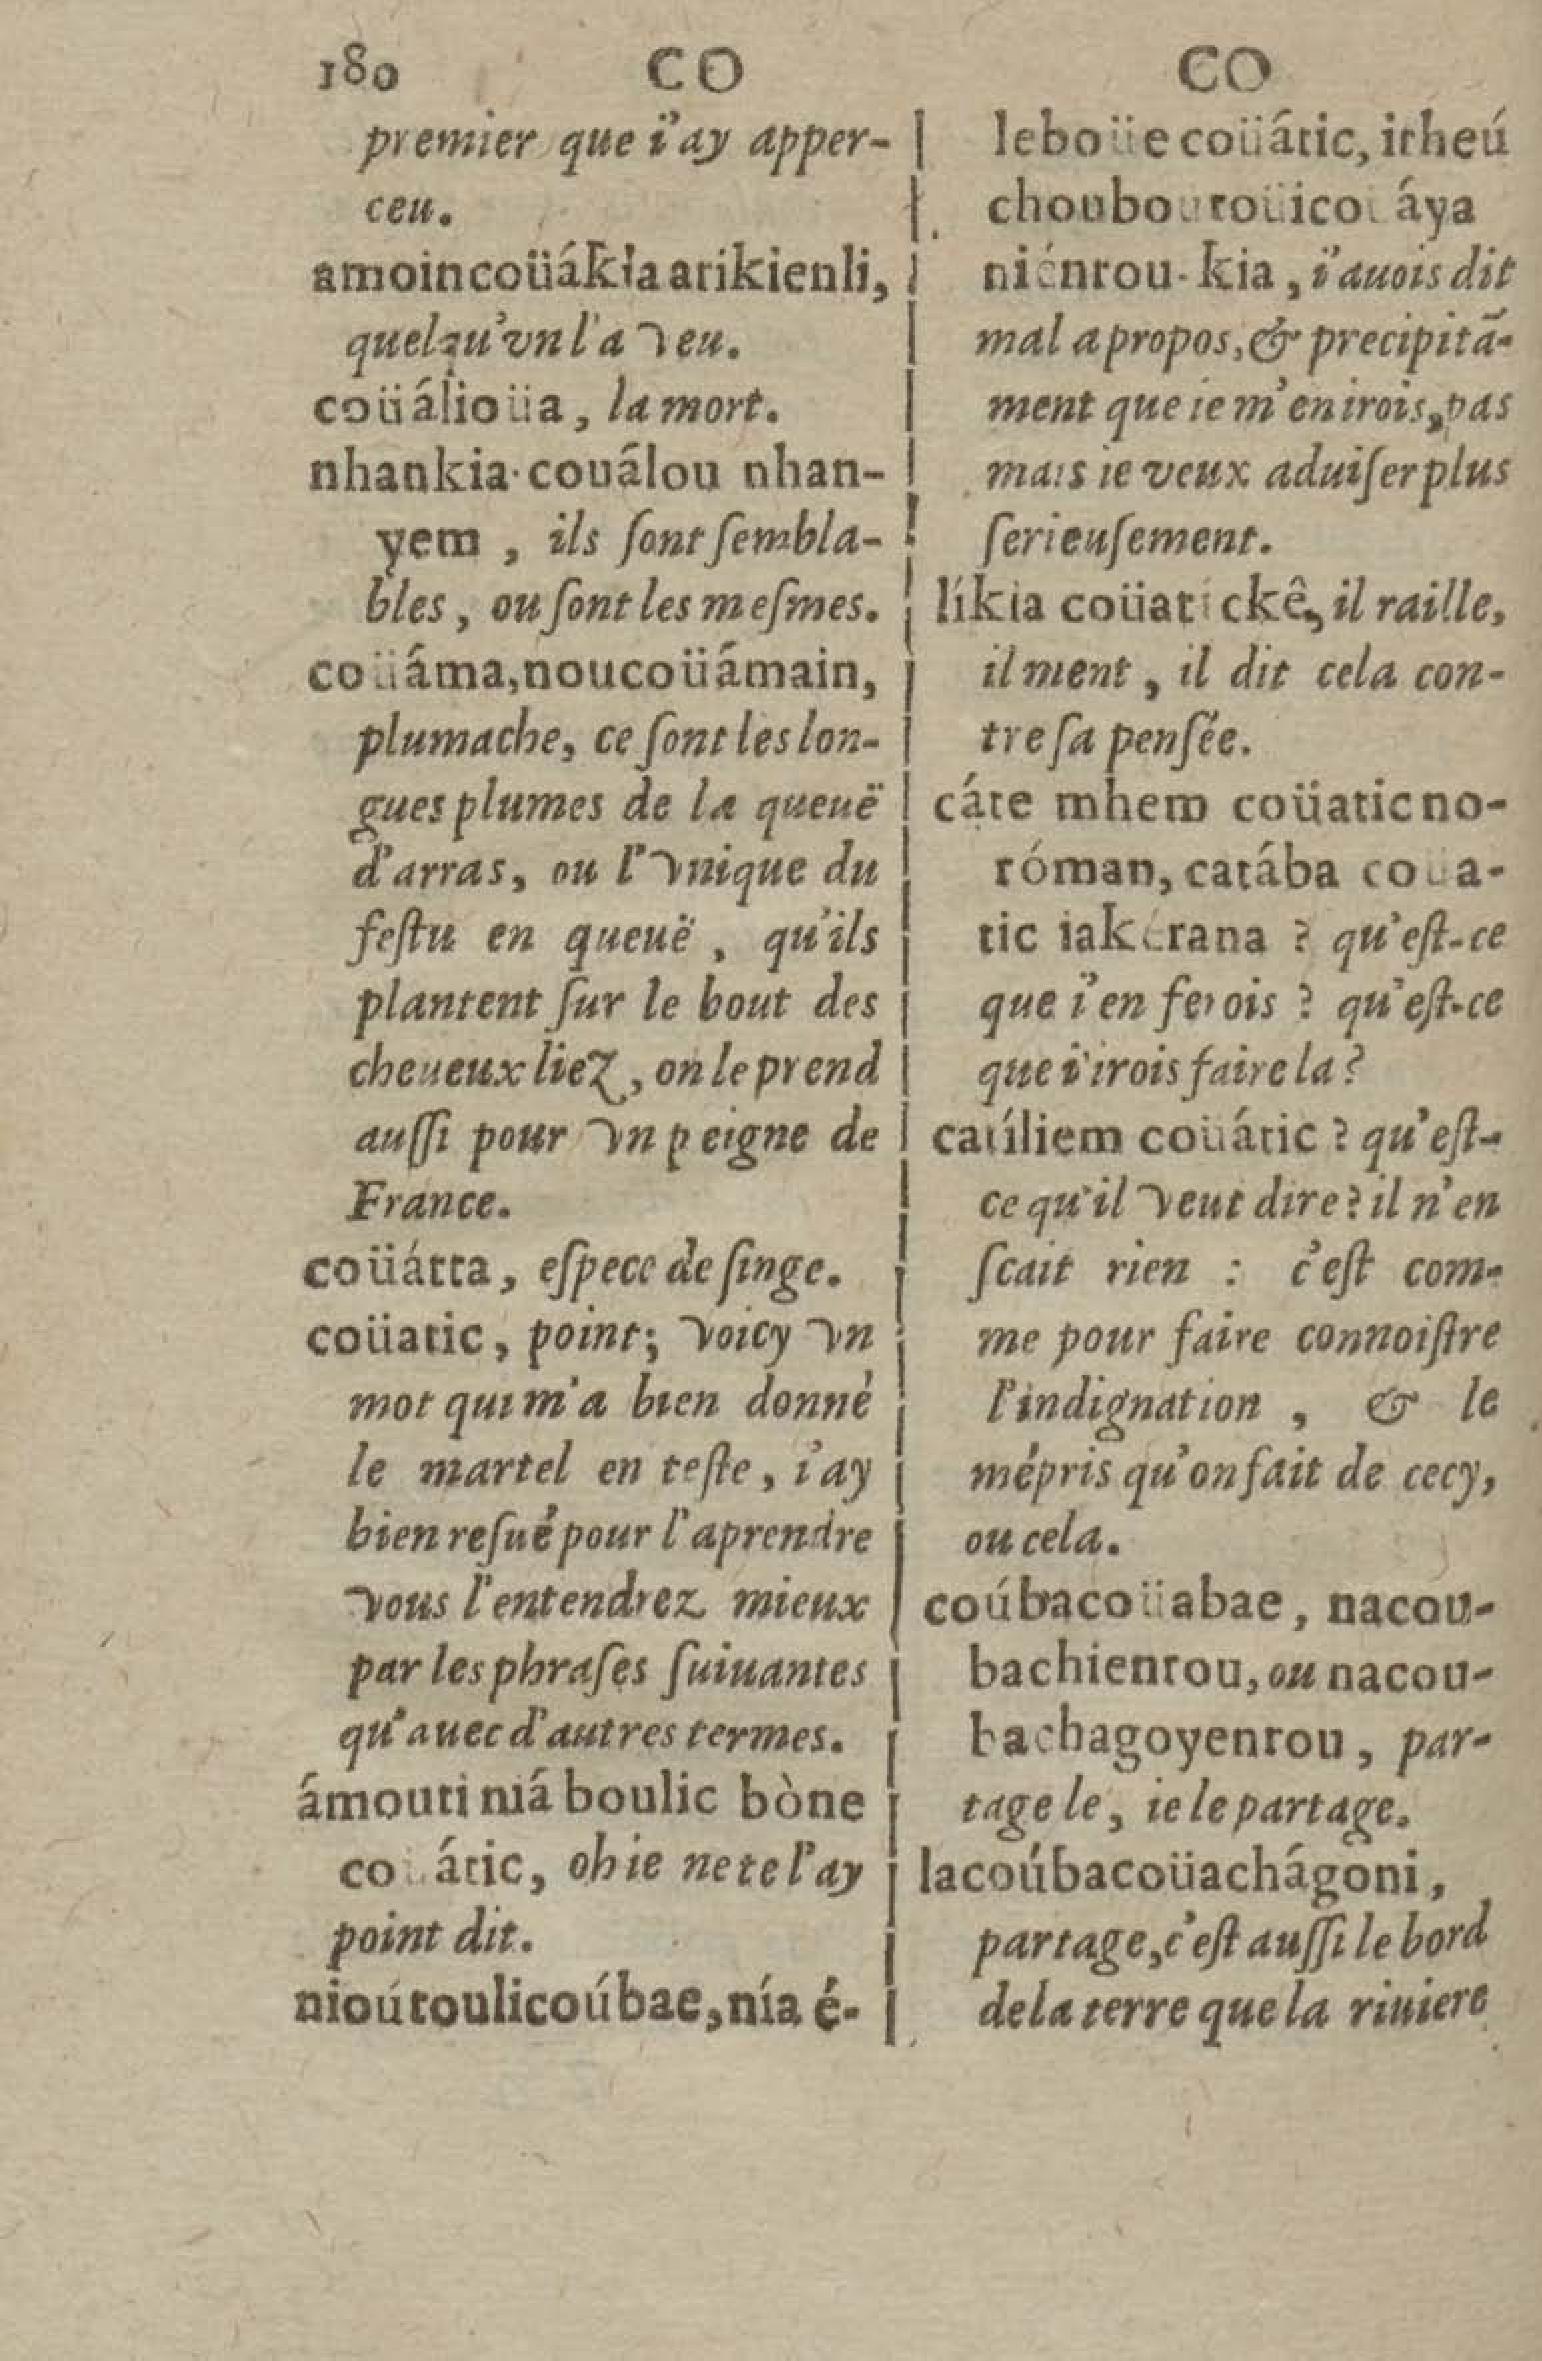 180 CO CO
premier que i'ay apper-
ceu.
amoincoüákia arikienli,
quelqu'vn l'a veu.
coüálioüa, la mort.
nhankia-couálou nhan-
yem, ils ſont ſembla-
bles, ou ſont les meſmes.
coüáma, noucoüámain,
plumache, ce ſont les lon-
gues plumes de la queuë
d'arras, ou l'vnique du
feſtu en queuë, qu'ils
plantent ſur le bout des
cheueux liez, on le prend
auſſi pour vn peigne de
France.
coüátta, eſpece de ſinge.
coüatic, point; voicy vn
mot qui m'a bien donné
le martel en teſte, i'ay
bien reſué pour l'aprendre
vous l'entendrez mieux
par les phraſes ſuiuantes
qu'auec d'autres termes.
ámouti niá boulic bòne
coüátic, oh ie ne te l'ay
point dit.
nioútoulicoúbae, nía é-
leboüe coüátic, itheú
áya
niéntou-kia, i'auois dit
mal a propos, & precipitã-
ment que ie m'en irois, pas
mais ie veux aduiſer plus
ſerieuſement.
líkia coüatickê, il raille,
il ment, il dit cela con-
tre ſa penſée.
cáte mhem coüatic no-
róman, catába coüa-
tic iakérana ? qu'eſt-ce
que i'en ferois ? qu'eſt-ce
que i'irois faire la ?
catíliem coüátic ? qu'eſt-
ce qu'il veut dire ? il n'en
ſcait rien : c'eſt com-
me pour faire connoiſtre
l'indignation, & le
mépris qu'on fait de cecy,
ou cela.
coúbacoüabae, nacou-
bachientou, ou nacou-
bachagoyentou, par-
tage le, ie le partage.
lacoúbacoüachágoni,
partage, c'eſt auſſi le bord
de la terre que la riuiere